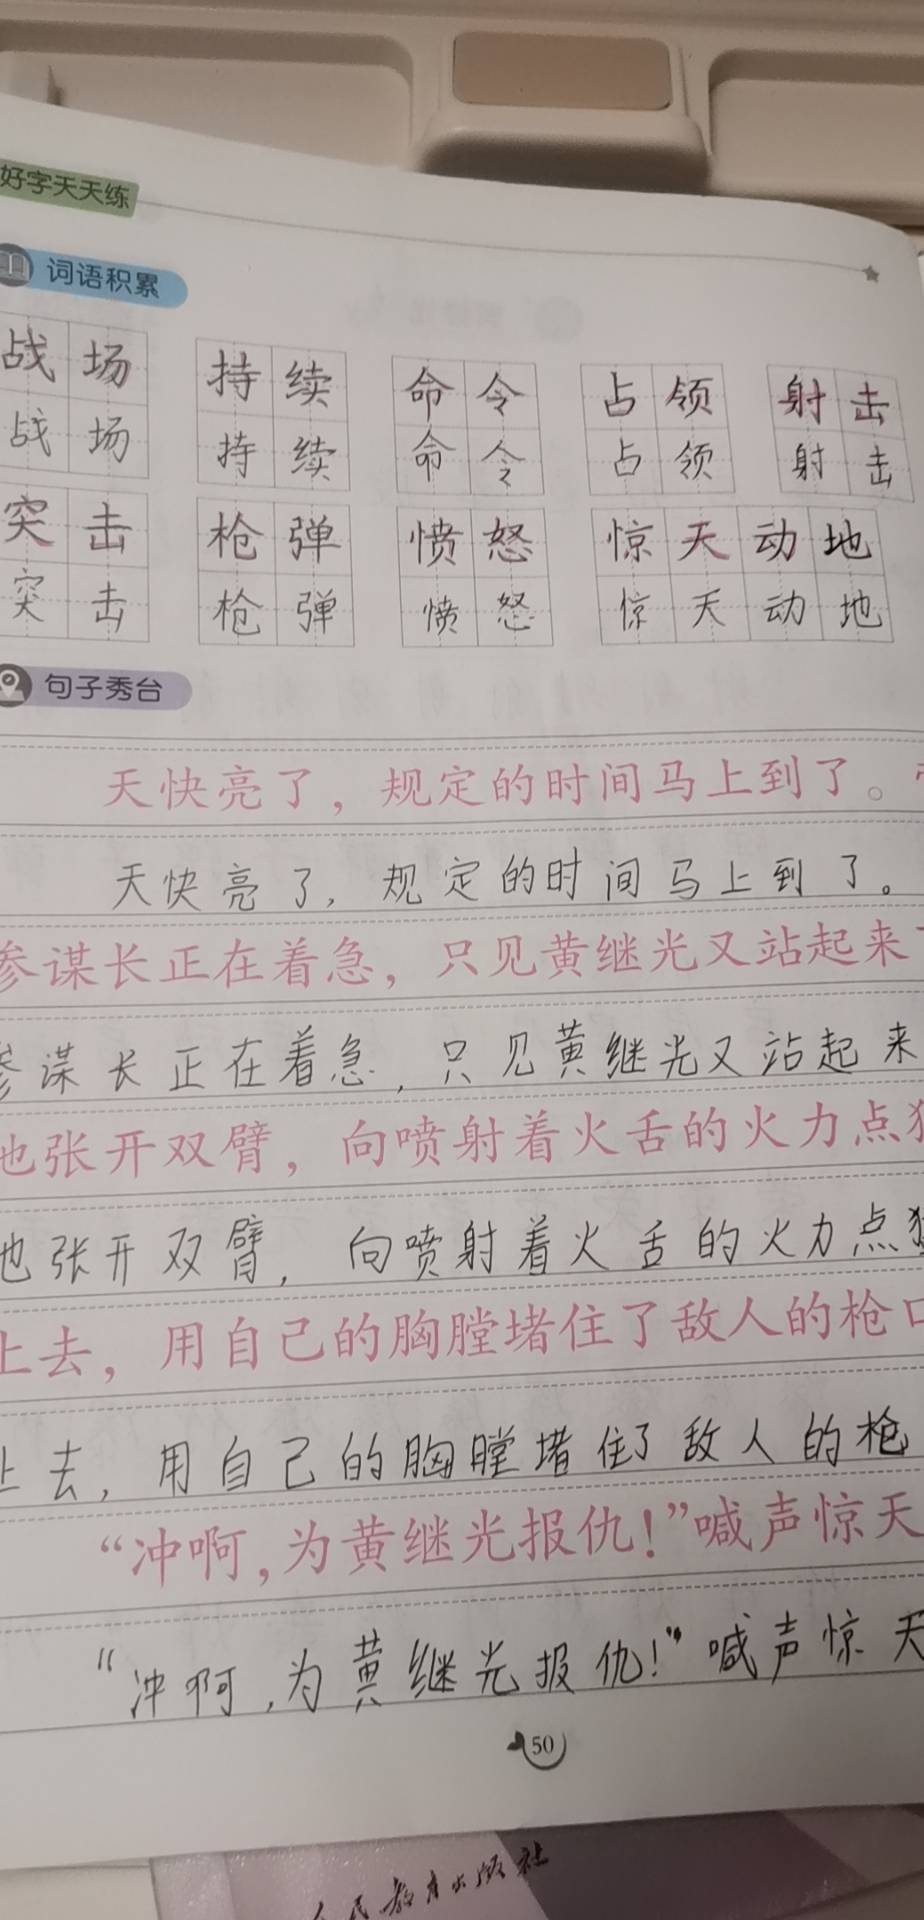 好字天天练
词语积累
战场 持续 命令 占领 射击
战场 持续 命令 占领 射击
突击 枪弹 愤怒 惊天动地
突击 枪弹 愤怒 惊天动地
句子秀台
天快亮了，规定的时间马上到了。
天快亮了，规定的时间马上到了。
参谋长正在着急，只见黄继光又站起来
参谋长正在着急，只见黄继光又站起来
他张开双臂，向喷射着火舌的火力点猛
他张开双臂，向喷射着火舌的火力点猛
上去，用自己的胸膛堵住了敌人的枪口
上去，用自己的胸膛堵住了敌人的枪
“冲啊，为黄继光报仇！”喊声惊天
“冲啊，为黄继光报仇！”喊声惊天
50
人民教育出版社